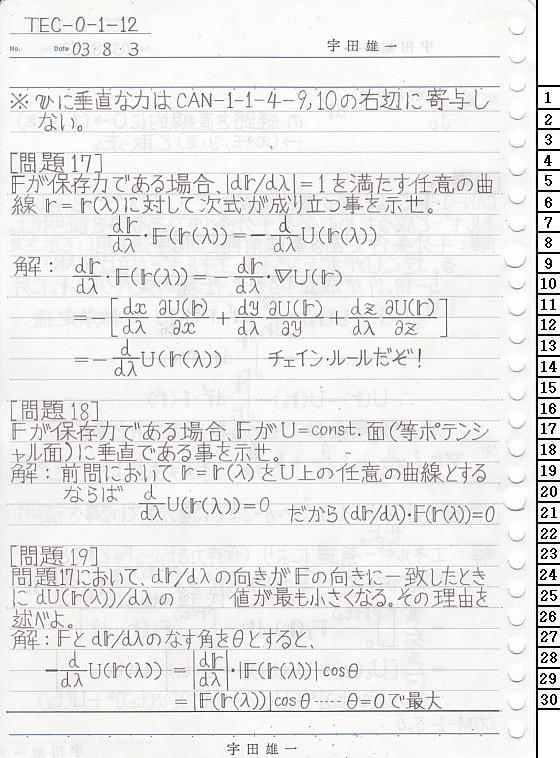 TEC-0-1-12
No. Date 03・8・3 宇田雄一
※ 𝕧に垂直な力は CAN-1-1-4-9,10の右辺に寄与し
ない。
[問題17]
𝔽が保存力である場合、|d𝕣/dλ|=1を満たす任意の曲
線 𝕣=𝕣(λ)に対して次式が成り立つ事を示せ。
d𝕣/dλ・𝔽(𝕣(λ))=-d/dλ U(𝕣(λ))
解: d𝕣/dλ・𝔽(𝕣(λ))=-d𝕣/dλ・∇U(𝕣)
=-[dx/dλ ∂U(𝕣)/∂x + dy/dλ ∂U(𝕣)/∂y + dz/dλ ∂U(𝕣)/∂z]
=-d/dλ U(𝕣(λ)) チェイン・ルールだぞ!
[問題18]
𝔽が保存力である場合、𝔽がU=const.面(等ポテンシ
ャル面)に垂直である事を示せ。
解: 前問において𝕣=𝕣(λ)をU上の任意の曲線とする
ならば d/dλ U(𝕣(λ))=0 だから(d𝕣/dλ)・𝔽(𝕣(λ))=0
[問題19]
問題17において、d𝕣/dλの向きが𝔽の向きに一致したとき
にdU(𝕣(λ))/dλの 値が最も小さくなる。その理由を
述べよ。
解: 𝔽とd𝕣/dλのなす角をθとすると、
-d/dλ U(𝕣(λ)) =|d𝕣/dλ|・|𝔽(𝕣(λ))|cosθ
=|𝔽(𝕣(λ))|cosθ‥‥‥θ=0で最大
宇田雄一
1
2
3
4
5
6
7
8
9
10
11
12
13
14
15
16
17
18
19
20
21
22
23
24
25
26
27
28
29
30